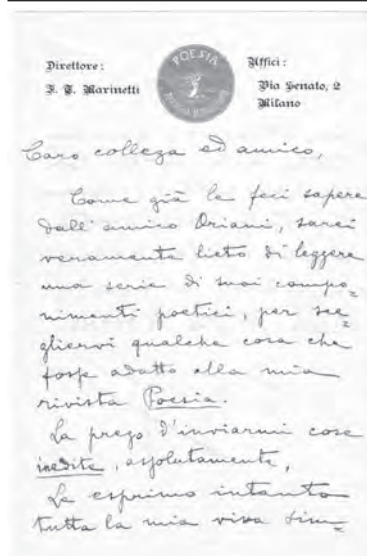 Direttore:
F. T. Marinetti
POESIA
Uffici:
Via Senato, 2
Milano
Caro collega ed amico,
Come già le feci sapere
dall'amico Oriani, sarei
veramente lieto di leggere
una serie di suoi compo=
nimenti poetici, per sce=
gliervi qualche cosa che
fosse adatto alla mia
rivista Poesia.
La prego d'inviarmi cose
inedite, assolutamente,
Le esprimo intanto
tutta la mia viva sim=